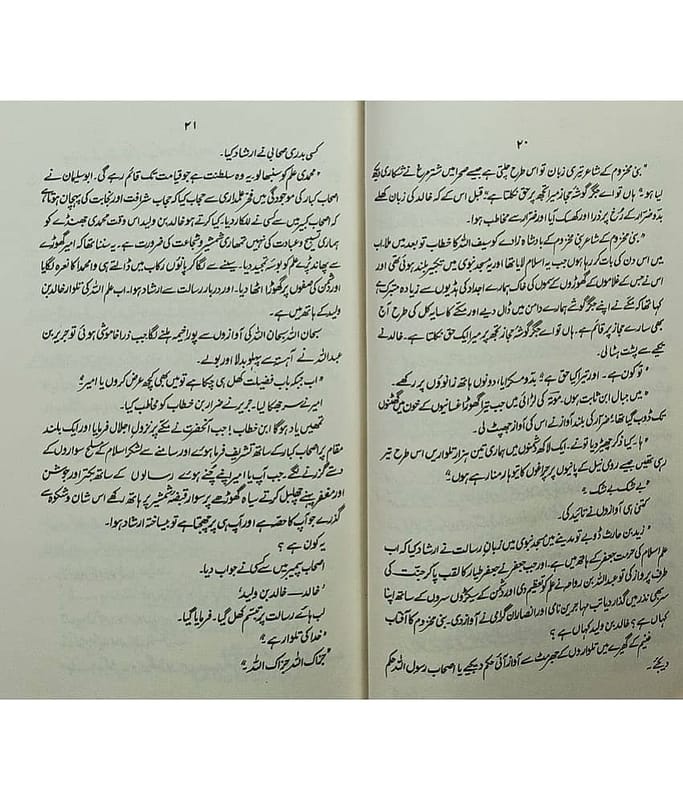 ۲۰
"بنی مخزوم کے شاعر تیری زبان تو اس طرح چلتی ہے جیسے صحرا میں شتر مرغ نے شکاری دیکھ
لیا ہو" ہاں تو اے جگر گوشۂ حجاز میرا تجھ پر حق نکلتا ہے" قبل اس کے کہ خالد کی زبان کھلے
بدّو ضرار کے رُخ پر ذرا اور کھسک آیا اور ضرار سے مخاطب ہوا۔
"بنی مخزوم کے شاعر بنی مخزوم کے بادشاہ زادے کو سیف اللہ کا خطاب تو بعد میں ملا اب
میں اس دن کی بات کر رہا ہوں جب یہ اسلام لایا تھا اور یہ مسجد نبوی میں تکبیر بلند ہوئی تھی اور
اس نے جس کے غلاموں کے گھوڑوں کے سموں کی خاک ہمارے اجداد کی ہڈیوں سے زیادہ متبرک ہے
کہا تھا کہ مکے نے اپنے جگر گوشے ہمارے دامن میں ڈال دیے اور مکے کا سایہ کل کی طرح آج
بھی سارے حجاز پر قائم ہے۔ ہاں تو اے جگر گوشۂ حجاز تجھ پر میرا ایک حق نکلتا ہے۔ خالد نے
تکیے سے پشت ہٹا لی۔
"تو کون ہے۔ اور تیرا کیا حق ہے" بدّو مسکرایا، دونوں ہاتھ زانوؤں پر رکھے۔
"میں جبال ابن ثابت ہوں۔ موتہ کی لڑائی میں جب تیرا گھوڑا غسانیوں کے خون میں گھٹنوں
تک ڈوب گیا تھا" ضرار کی بلند آواز نے اس کی آواز جھپٹ لی۔
"ہا، کیا ذکر چھیڑ دیا تو نے۔ ایک لاکھ دشمنوں میں ہماری تین ہزار تلواریں اس طرح تیر
رہی تھیں جیسے رودِ نیل کے پانیوں پر چراغوں کا تیوہار منا رہے ہوں"
"بے شک بے شک"
کتنی ہی آوازوں نے تائید کی۔
"زید بن حارث ڈوبے تو مدینے میں مسجد نبوی میں زبانِ رسالت نے ارشاد کیا کہ اب
علمِ اسلام کی حرمت جعفر کے ہاتھ میں ہے۔ اور جب جعفر نے جعفر طیار کا لقب پا کر جنّت کی
طرف پرواز کی تو عبداللہ بن رواحہ نے علم کو تعظیم دی اور دشمن کے سیکڑوں سروں کے ساتھ اپنا
سر بھی نذر میں گزار دیا تب مہاجرین نامی اور انصاران گرامی نے آواز دی۔ بنی مخزوم کا آفتاب
کہاں ہے؟ خالد بن ولید کہاں ہے؟
غنیم کے گھیرے میں تلواروں کے جھرمٹ سے آواز آئی حکم دیجئے یا اصحاب رسول اللہ حکم
دیجئے۔
۲۱
کسی بدری صحابی نے ارشاد کیا۔
"محمدی علم کو سنبھالو۔ یہ وہ سلطنت ہے جو قیامت تک قائم رہے گی۔ ابو سلیمان نے
اصحاب کبار کی موجودگی میں فخرِ علمداری سے حجاب کیا کہ حجاب شرافت اور نجابت کی پہچان ہوتا ہے
کہ اصحاب کبیر میں سے کسی نے للکار دیا۔ کیا کرتے ہو خالد بن ولید اس وقت محمدی جھنڈے کو
ہماری تسبیح و عبادت کی نہیں تمھاری شمشیر و شجاعت کی ضرورت ہے۔ یہ سننا تھا کہ امیر گھوڑے
سے پھاند پڑے علم کو بوسۂ تمجید دیا۔ سینے سے لگا کر پانوں رکاب میں ڈالتے ہی وا محمدا کا نعرہ لگایا
اور دشمن کی صفوں پر گھوڑا اٹھا دیا۔ اور دربار رسالت سے ارشاد ہوا۔ اب علم اللہ کی تلوار خالد بن
ولید کے ہاتھ میں ہے۔
سبحان اللہ سبحان اللہ کی آوازوں سے پورا خیمہ ہلنے لگا۔ جب ذرا خاموشی ہوئی تو جریر بن
عبداللہ نے آہستہ سے پہلو بدلا اور بولے۔
"اب جبکہ باب فضیلت کھل ہی چکا ہے تو میں بھی کچھ عرض کروں یا امیر"
امیر نے سر جھکا لیا۔ جریر نے ضرار بن خطاب کو مخاطب کیا۔
تمھیں یاد ہوگا ابن خطاب! جب آنحضرت نے مکے پر نزولِ اجلال فرمایا اور ایک بلند
مقام پر اصحاب کبار کے ساتھ تشریف فرما ہوئے اور سامنے سے لشکرِ اسلام کے مسلح سواروں کے
دستے گزرنے لگے۔ جب آپ یا امیر اپنے چُنے ہوئے رسالوں کے ساتھ بکتر اور جوشن
اور مغفر پہنے چھلبل کرتے سیاہ گھوڑے پر سوار قبضۂ شمشیر پر ہاتھ رکھے اس شان و شکوہ سے
گذرے جو آپ کا حصہ ہے اور آپ ہی پر پھبتا ہے تو بیساختہ ارشاد ہوا۔
یہ کون ہے؟
اصحاب پیمبر میں سے کسی نے جواب دیا۔
"خالد — خالد بن ولید"
لب ہائے رسالت پر تبسم کھل گیا۔ فرمایا گیا۔
"خدا کی تلوار ہے"
"جزاک اللہ جزاک اللہ"